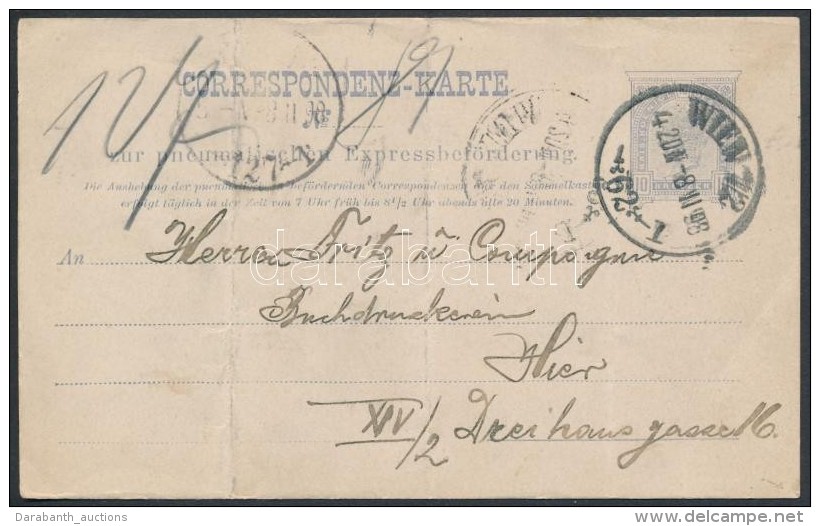 CORRESPONDENZ-KARTE
zur pneumatischen Expressbeförderung.
Die Aushebung der pneumatisch zu befördernden Correspondenzen aus den Sammelkasten
erfolgt täglich in der Zeit von 7 Uhr früh bis 8½ Uhr abends alle 20 Minuten.
WIEN 1/2
4·20N -8 VI 98
*62*
1
An Herren Fritz u Compagnie
Buchdruckerein
Hier
XIV/2 Dreihausgasse 16.
darabanth
Darabanth_auctions
www.delcampe.net